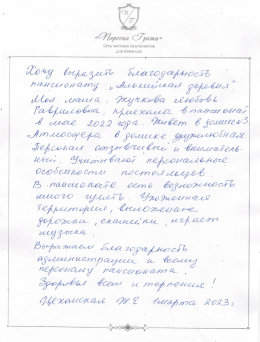 «Терезия Групп»
Сеть частных пансионатов
для пожилых
Хочу выразить благодарность
пансионату „Альпийская деревня“
Моя мама, Жучкова Любовь
Гавриловна, приехала в пансионат
в мае 2022 года. Живёт в домике 3
Атмосфера в домике дружелюбная
Персонал отзывчивый и вниматель-
ный. Учитывают персональные
особенности постояльцев
В пансионате есть возможность
много гулять. Ухоженная
территория, выложенные
дорожки, скамейки, играет
музыка.
Выражаем благодарность
администрации и всему
персоналу пансионата.
Здоровья всем и терпения!
1 марта 2023г